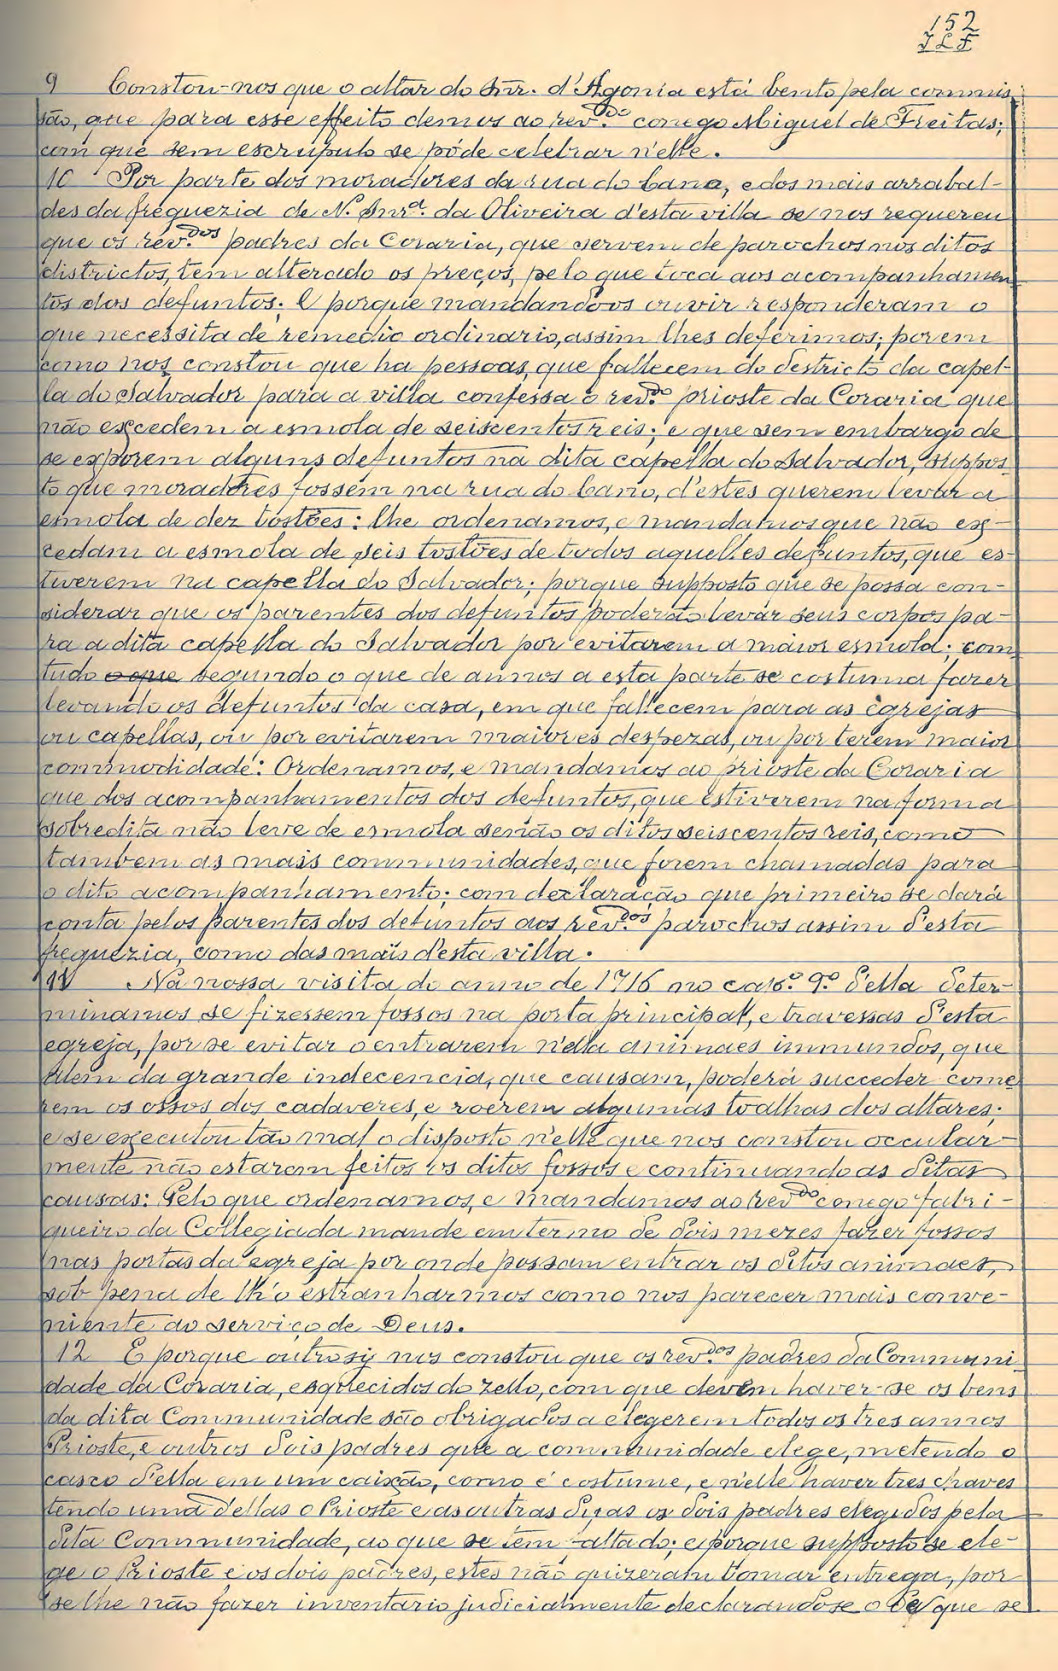 152
JLF
9 Constou-nos que o altar do Snr. d'Agonia está bento pela commis
são, que para esse effeito demos ao rev.do conego Miguel de Freitas;
com que sem escrupulo se póde celebrar n'elle.
10 Por parte dos moradores da rua do Cano, e dos mais arrabal-
des da freguezia de N. Snr.a da Oliveira d'esta villa se nos requereu
que os rev.dos padres da Coraria, que servem de parochos nos ditos
districtos, tem alterado os preços, pelo que toca aos acompanhamen
tos dos defuntos; E porque mandando-os ouvir responderam o
que necessita de remedio ordinario, assim lhes deferimos; porem
como nos constou que ha pessoas, que fallecem do destricto da capel-
la do Salvador para a villa confessa o rev.do prioste da Coraria que
não excedem a esmola de seiscentos reis; e que sem embargo de
se exporem alguns defuntos na dita capella do Salvador, suppos-
to que moradores fossem na rua do Cano, d'estes querem levar a
esmola de dez tostões: lhe ordenamos, e mandamos que não ex-
cedam a esmola de seis tostões de todos aquelles defuntos, que es-
tiverem na capella do Salvador; porque supposto que se possa con-
siderar que os parentes dos defuntos poderão levar seus corpos pa-
ra a dita capella do Salvador por evitarem a maior esmola; com-
tudo o que segundo o que de annos a esta parte se costuma fazer
levando os defuntos da casa, em que fallecem para as egrejas
ou capellas, ou por evitarem maiores despezas, ou por terem maior
commodidade: Ordenamos, e mandamos ao prioste da Coraria
que dos acompanhamentos dos defuntos, que estiverem na forma
sobredita não leve de esmola senão os ditos seiscentos reis, como
tambem as mais communidades, que forem chamadas para
o dito acompanhamento; com declaração que primeiro se dará
conta pelos parentes dos defuntos aos rev.dos parochos assim d'esta
freguezia, como das mais d'esta villa.
11 Na nossa visita do anno de 1716 no cap.o 9.o d'ella deter-
minamos se fizessem fossos na porta principal, e travessas d'esta
egreja, por se evitar o entrarem n'ella animaes immundos, que
alem da grande indecencia, que causam, poderá succeder come
rem os ossos dos cadaveres, e roerem algumas toalhas dos altares;
e se executou tão mal o disposto n'elle que nos constou occular-
mente não estarem feitos os ditos fossos e continuando as ditas
causas: Pelo que ordenamos, e mandamos ao rev.do conego fabri-
queiro da Collegiada mande em termo de dois mezes fazer fossos
nas portas da egreja por onde possam entrar os ditos animaes,
sob pena de lh'o estranharmos como nos parecer mais conve-
niente ao serviço de Deus.
12 E porque outrosij nos constou que os rev.dos padres da Communi-
dade da Coraria, esquecidos do zello, com que devem haver-se os bens
da dita Communidade são obrigados a elegerem todos os tres annos
Prioste, e outros dois padres que a communidade elege, metendo o
casco d'ella em um caixão, como é costume, e n'elle haver tres chaves
tendo uma d'ellas o Prioste e as outras duas os dois padres elegidos pela
dita Communidade, ao que se tem faltado; e porque supposto se ele-
ge o Prioste e os dois padres, estes não quizeram tomar entrega, por
se lhe não fazer inventario judicialmente declarando-se o que se